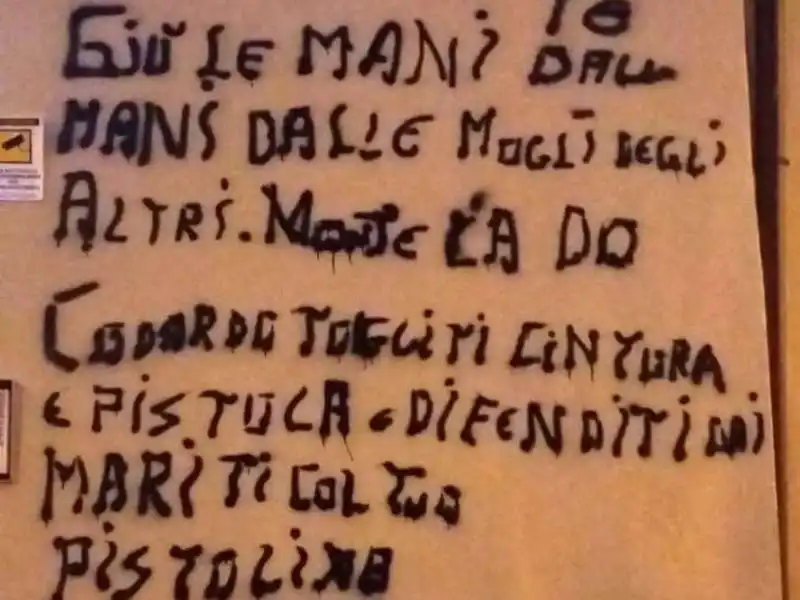 GiÙ LE MANi
DALL
MANi DALLE MOGLi DEGLi
ALTRi. MORTE CA DO
CODARDO TOGLiTi CiNTURA
E PiSTOLA E DiFENDiTi DAi
MARiTi COL TUO
PiSTOLiNO